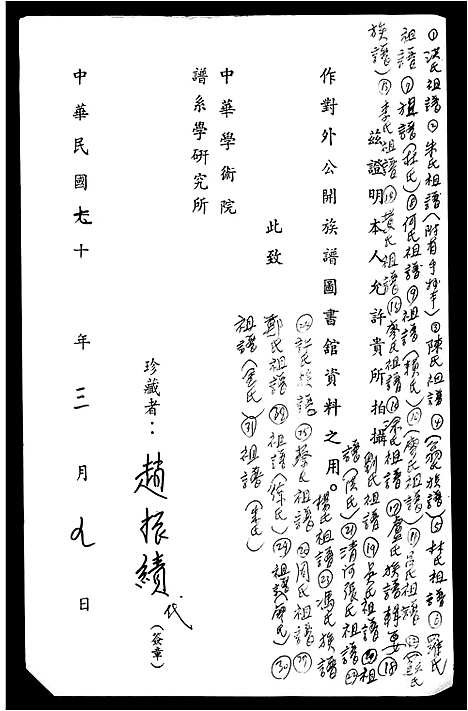 ①洪氏祖譜②朱氏祖譜(附有手抄本)③陳氏祖譜④(翁氏族譜)⑤林氏祖譜⑥羅氏
祖譜⑦族譜(林氏)⑧何氏祖譜⑨祖譜(賴氏)⑩(廖氏祖譜)⑪呂氏祖譜
族譜)⑬李氏祖譜⑭黃氏祖譜⑮廖氏祖譜⑯涂氏祖譜⑰盧氏族譜輯要⑱
茲證明本人允許貴所拍攝
劉氏祖譜⑲吳氏祖譜⑳祖
譜(洪氏)㉑清河張氏祖譜㉒
作對外公開族譜圖書舘資料之用。
楊氏祖譜㉓馮氏族譜
㉔江氏族譜㉕蔡氏祖譜㉖周氏祖譜㉗
此致
鄭氏祖譜㉘祖譜(徐氏)㉙祖譜(廖氏)㉚
祖譜(金氏)㉛祖譜(朱氏)
中華學術院
譜系學研究所
珍藏者：趙振績代(簽章)
中華民國七十年三月九日